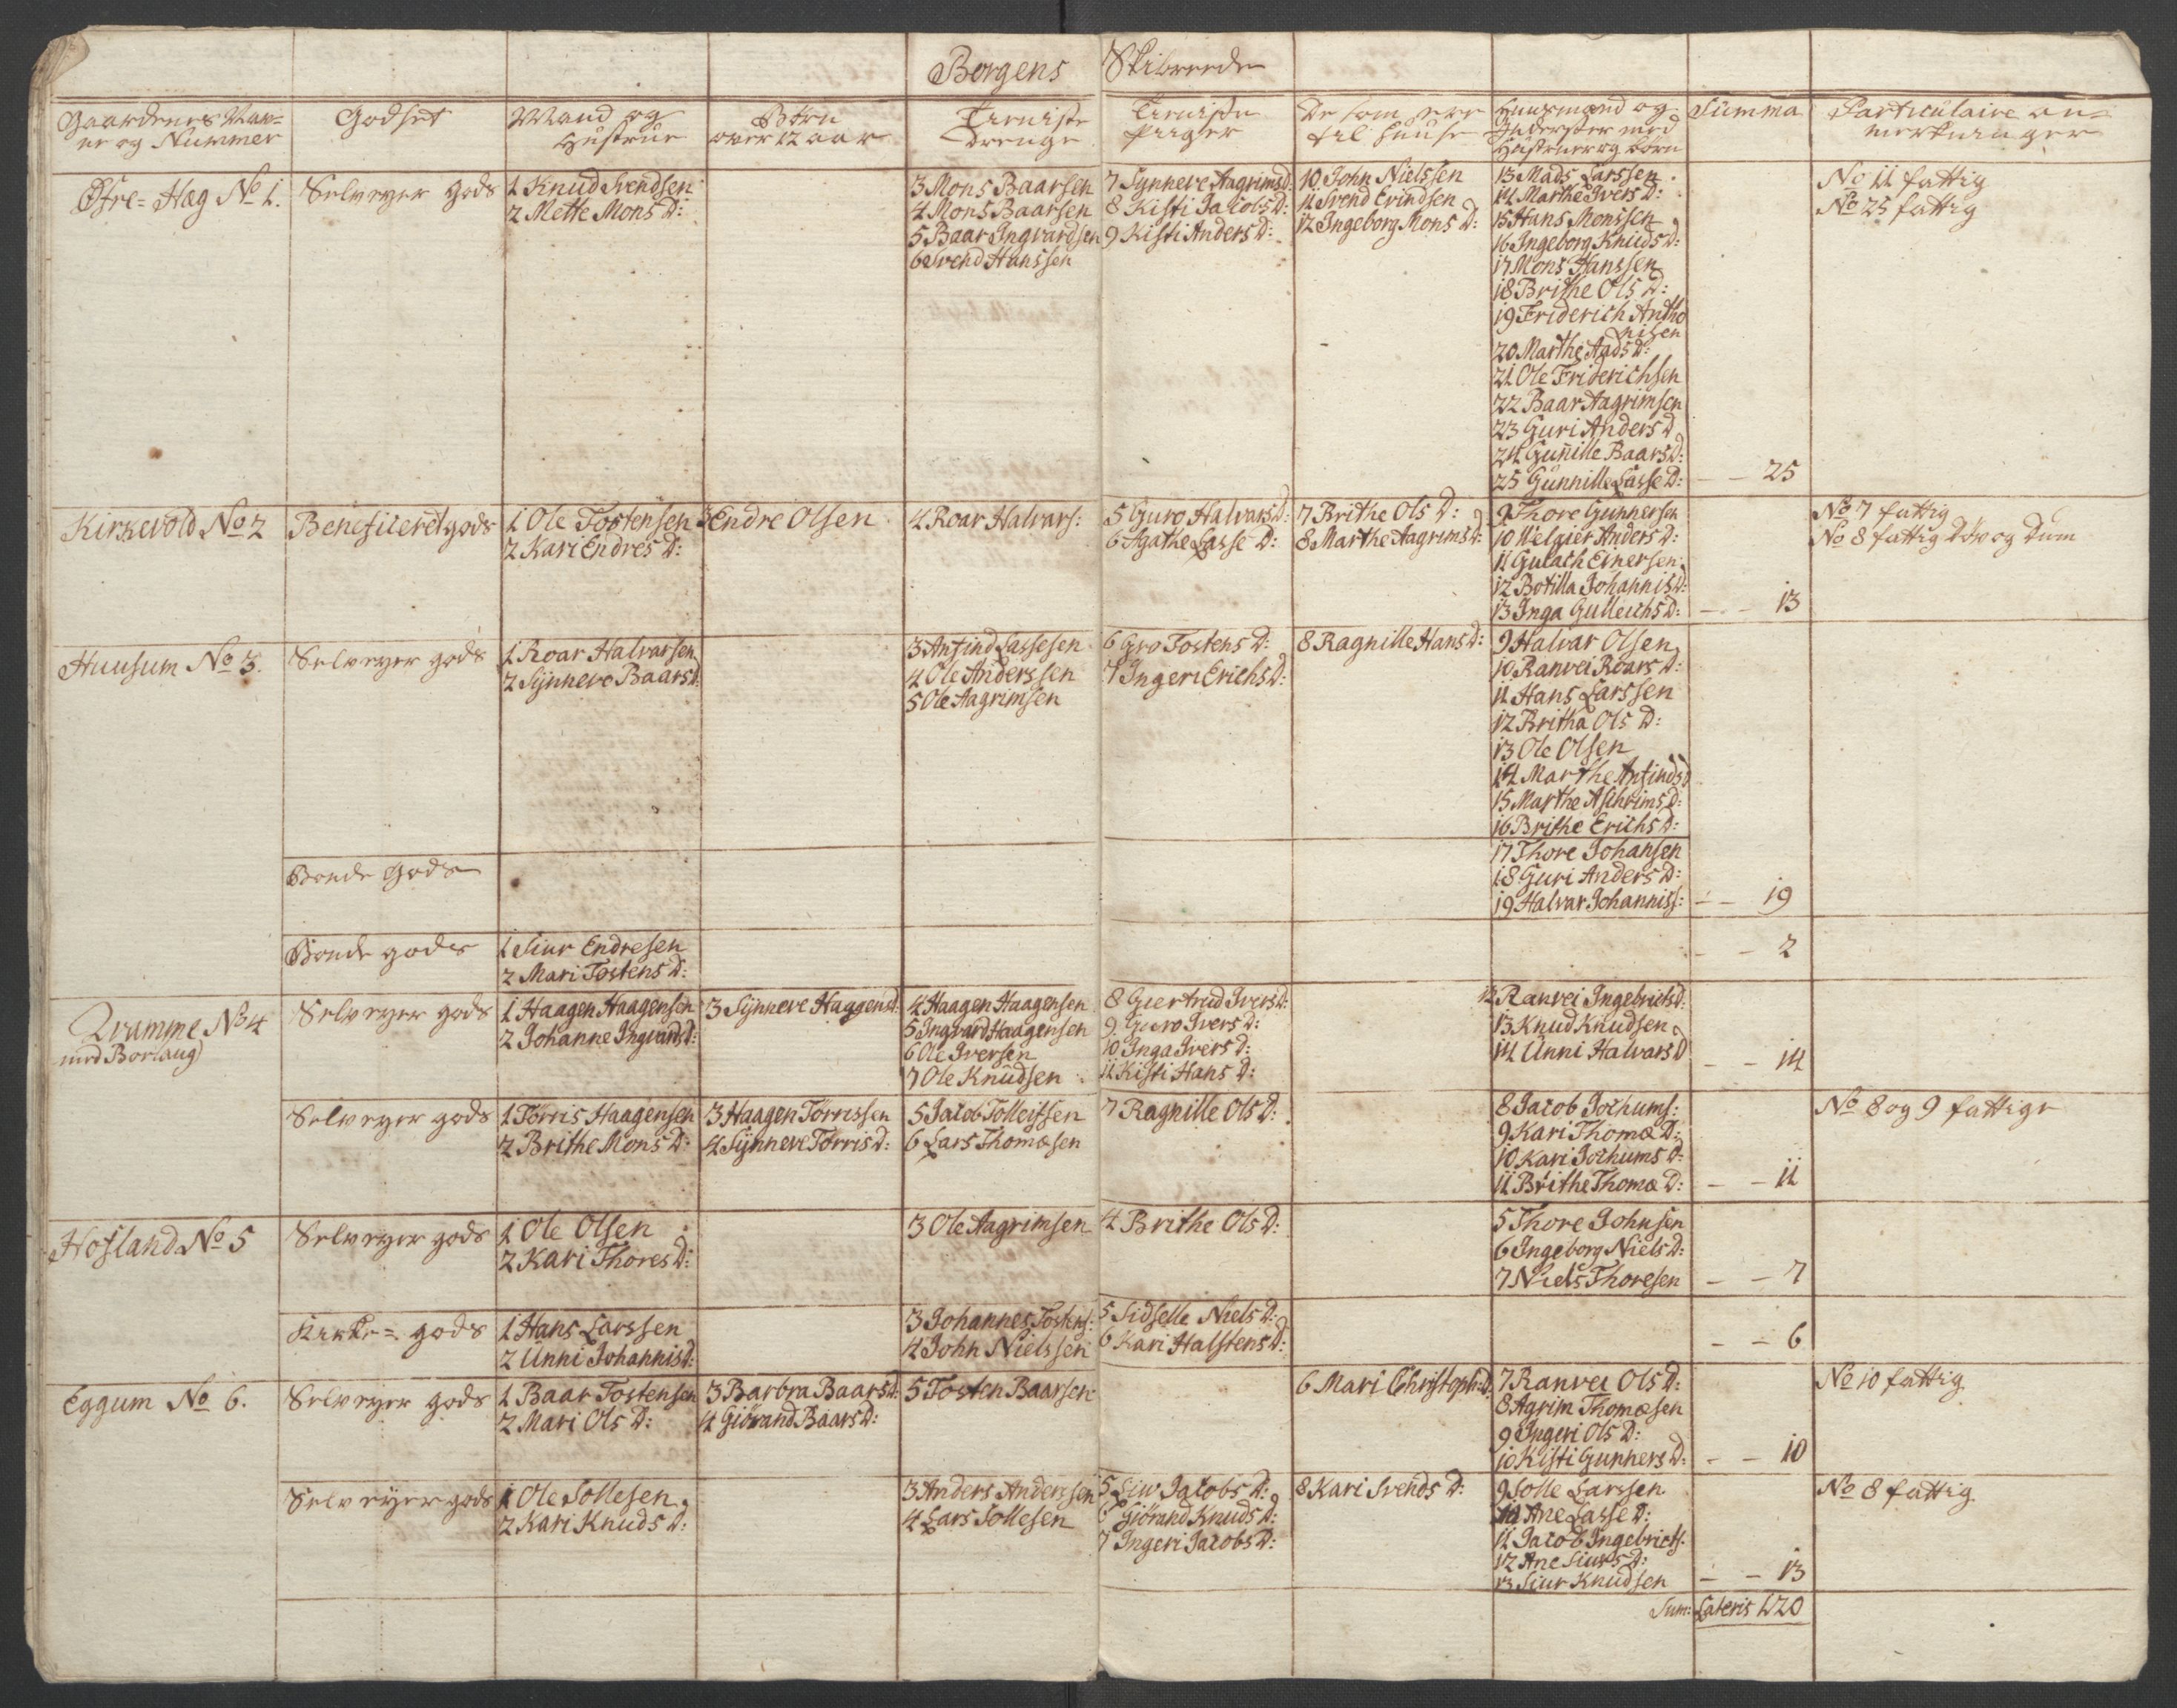 Borgens Skibreede
Gaardenes Nav=
ne og Nummer
Godset
Mand og
Hustrue
Børn
over 12 aar
Tieniste
Drenge
Tieniste
Piiger
De som ere
til Huuse
Huusmænd og
Inderster med
Hustruer og børn
Summa
Particulaire an=
merkninger
Østre= Hæg No 1.
Selveyer gods
1 Knud Svendsen
2 Mette Mons D:
3 Mons Baarsen
4 Mons Baarsen
5 Baar Ingvardsen
6 Svend Hanssen
7 Synneve Aagrimsd:
8 Kisti Jacobs D:
9 Kisti Anders D:
10 John Nielssen
11 Svend Evindsen
12 Ingeborg Mons D:
13 Mads Larssen
14 Marthe Ivers D:
15 Hans Monssen
16 Ingeborg Knuds D:
17 Mons Hanssen
18 Brithe Ols D:
19 Friderich Antho
nisen
20 Marthe Aads D:
21 Ole Friderichsen
22 Baar Aagrimsen
23 Guri Anders D
24 Gunille Baars D:
25 Gunnille Lasse D:
- - 25
No 11 fattig
No 25 fattig
Kirkevold No 2
Beneficeret gods
1 Ole Tostensen
2 Kari Endres D:
3 Endre Olsen
4 Roar Halvars:
5 Guro Halvars D:
6 Agathe Lasse D:
7 Brithe Ols D:
8 Marthe Aagrims D:
9 Thore Gunnersen
10 Welgier Anders D:
11 Gulach Einersen
12 Botilla Johannis D:
13 Inga Gulleichs D:
- - 13
No 7 fattig
No 8 fattig Døv og Dum
Huusum No 3.
Selveyer gods
1 Roar Halvarsen
2 Synneve Baars D:
3 Anfind Lassesen
4 Ole Anderssen
5 Ole Aagrimsen
6 Gro Tostens D:
7 Ingeri Erichs D:
8 Ragnille Hans D:
9 Halvar Olsen
10 Ranvei Roars D:
11 Hans Larssen
12 Britha Ols D:
13 Ole Olsen
14 Marthe Anfinds D
15 Marthe Aschrims D:
16 Brithe Erichs D:
Bonde Gods
17 Thore Johansen
18 Guri Anders D:
19 Halvar Johanniss:
- - 19
Bonde gods
1 Siur Endresen
2 Mari Tostens D:
- - 2
Qvamme No 4
med Borlaug
Selveyer gods
1 Haagen Haagensen
2 Johanne Ingvards D:
3 Synneve Haagens D:
4 Haagen Haagensen
5 Ingvard Haagensen
6 Ole Iversen
7 Ole Knudsen
8 Giertrud Ivers D:
9 Guro Ivers D:
10 Inga Ivers D:
11 Kisti Hans D:
12 Ranvei Ingebrictsd:
13 Knud Knudsen
14 Unni Halvars D
- - 14
Selveyer gods
1 Torris Haagensen
2 Brithe Mons D:
3 Haagen Torrissen
4 Synneve Torris D:
5 Jacob Tolleifsen
6 Lars Thomæsen
7 Ragnille Ols D:
8 Jacob Jochums:
9 Kari Thomæ D:
10 Kari Jochums D:
11 Brithe Thomæ D:
- - 11
No 8 og 9 fattige
Hofland No 5
Selveyer gods
1 Ole Olsen
2 Kari Thores D:
3 Ole Aagrimsen
4 Brithe Ols D:
5 Thore Johnsen
6 Ingeborg Niels D:
7 Niels Thoresen
- - 7
Kirke= gods
1 Hans Larssen
2 Unni Johannis D:
3 Johannes Tostens:
4 John Nielssen
5 Sidselle Niels D:
6 Kari Halstens D:
- - 6
Eggum No 6.
Selveyer gods
1 Baar Tostensen
2 Mari Ols D:
3 Barbra Baars D:
4 Giørand Baars D:
5 Tosten Baarsen
6 Mari Christoph: D:
7 Ranvei Ols D:
8 Agrim Thomæsen
9 Ingeri Ols D:
10 Kisti Gunners D:
- - 10
No 10 fattig
Selveyer gods
1 Ole Sollesen
2 Kari Knuds D:
3 Anders Anderssen
4 Lars Sollesen
5 Liw Jacobs D:
6 Giørand Knuds D:
7 Ingeri Jacobs D:
8 Kari Svends D:
9 Solle Larssen
10 Ane Lasse D:
11 Jacob Ingebricts.
12 Ane Siurs D:
13 Siur Knudsen
- - 13
No 8 fattig
Sum: Lateris 120